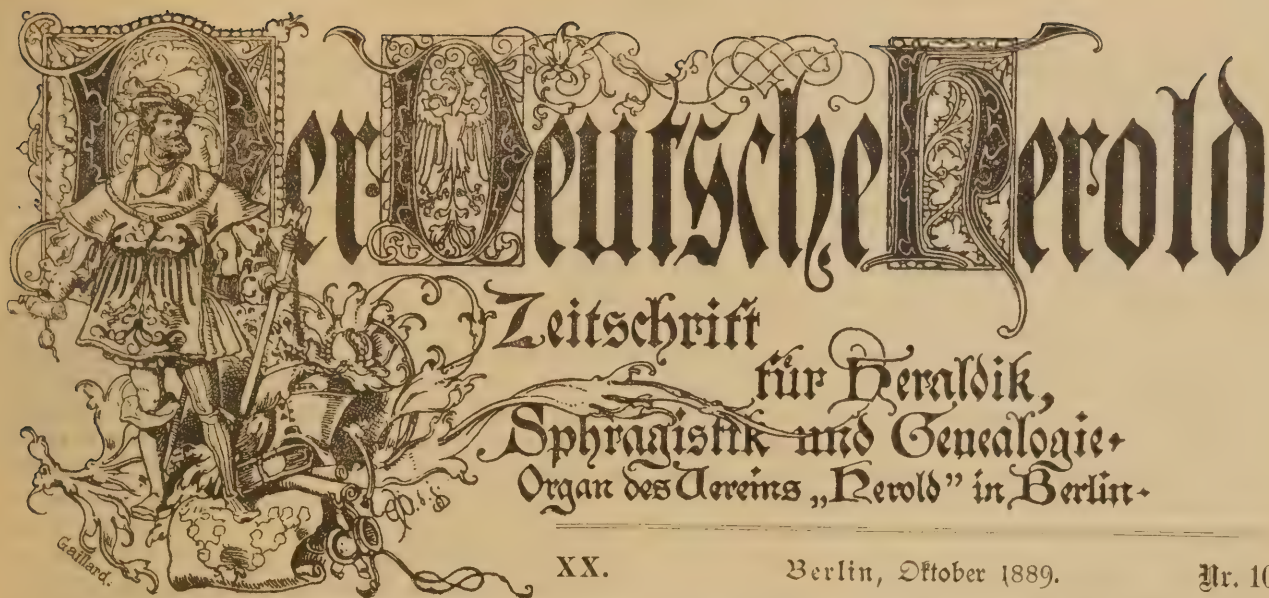 Der Deutsche Herold
Zeitschrift
für Heraldik,
Sphragistik und Genealogie.
Organ des Vereins „Herold” in Berlin.
Gaillard.
XX. Berlin, Oktober 1889. Nr. 10